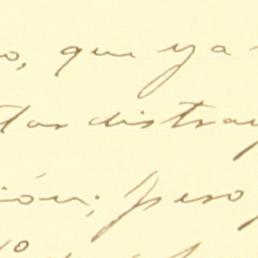 o, que ya
tar distra
ión; peso